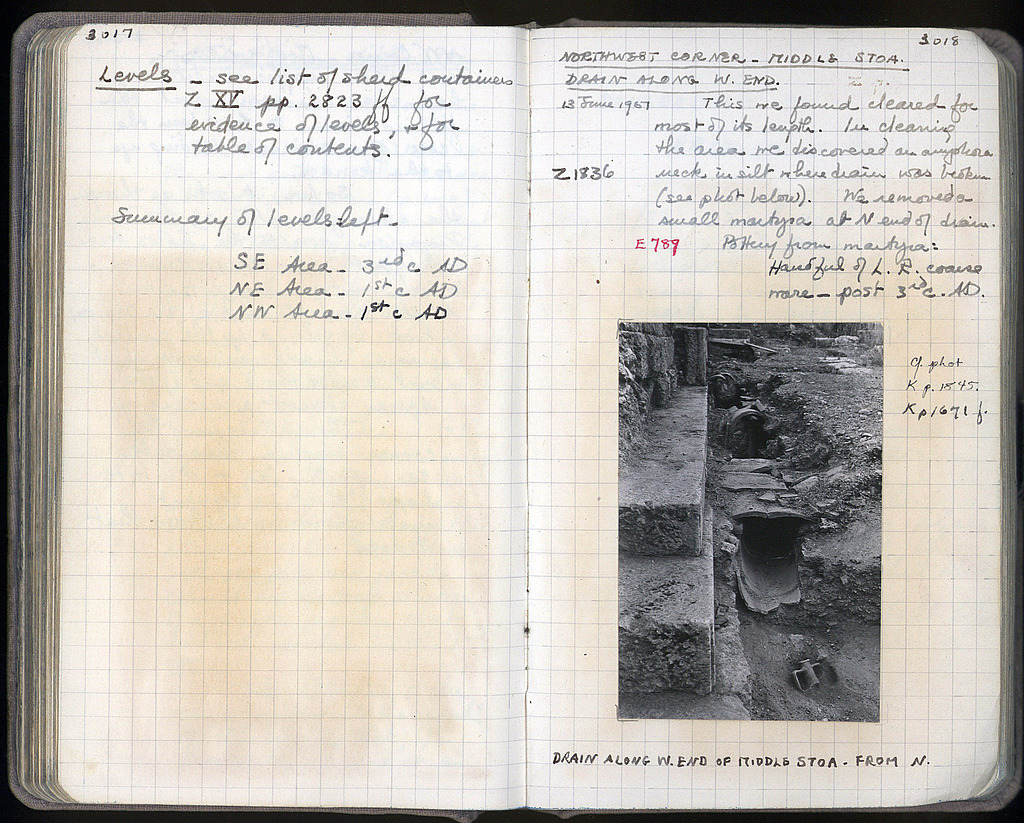 3017
Levels - see list of sherd containers
Z XV pp. 2823 ff for
evidence of levels, + for
table of contents.
Summary of levels left -
SE Area - 3rd c AD
NE Area - 1st c AD
NW Area - 1st c AD
3018
NORTHWEST CORNER - MIDDLE STOA.
DRAIN ALONG W. END.
13 June 1951 This we found cleared for
most of its length. In cleaning
the area we discovered an amphora
Z1836 neck in silt where drain was broken
(see phot below). We removed a
small martyra at N end of drain.
E 789 Pottery from martyra:
Handful of L. R. coarse
ware - post 3rd c. AD.
Cf. phot
K p. 1845.
K p 1671 f.
DRAIN ALONG W. END OF MIDDLE STOA - FROM N.